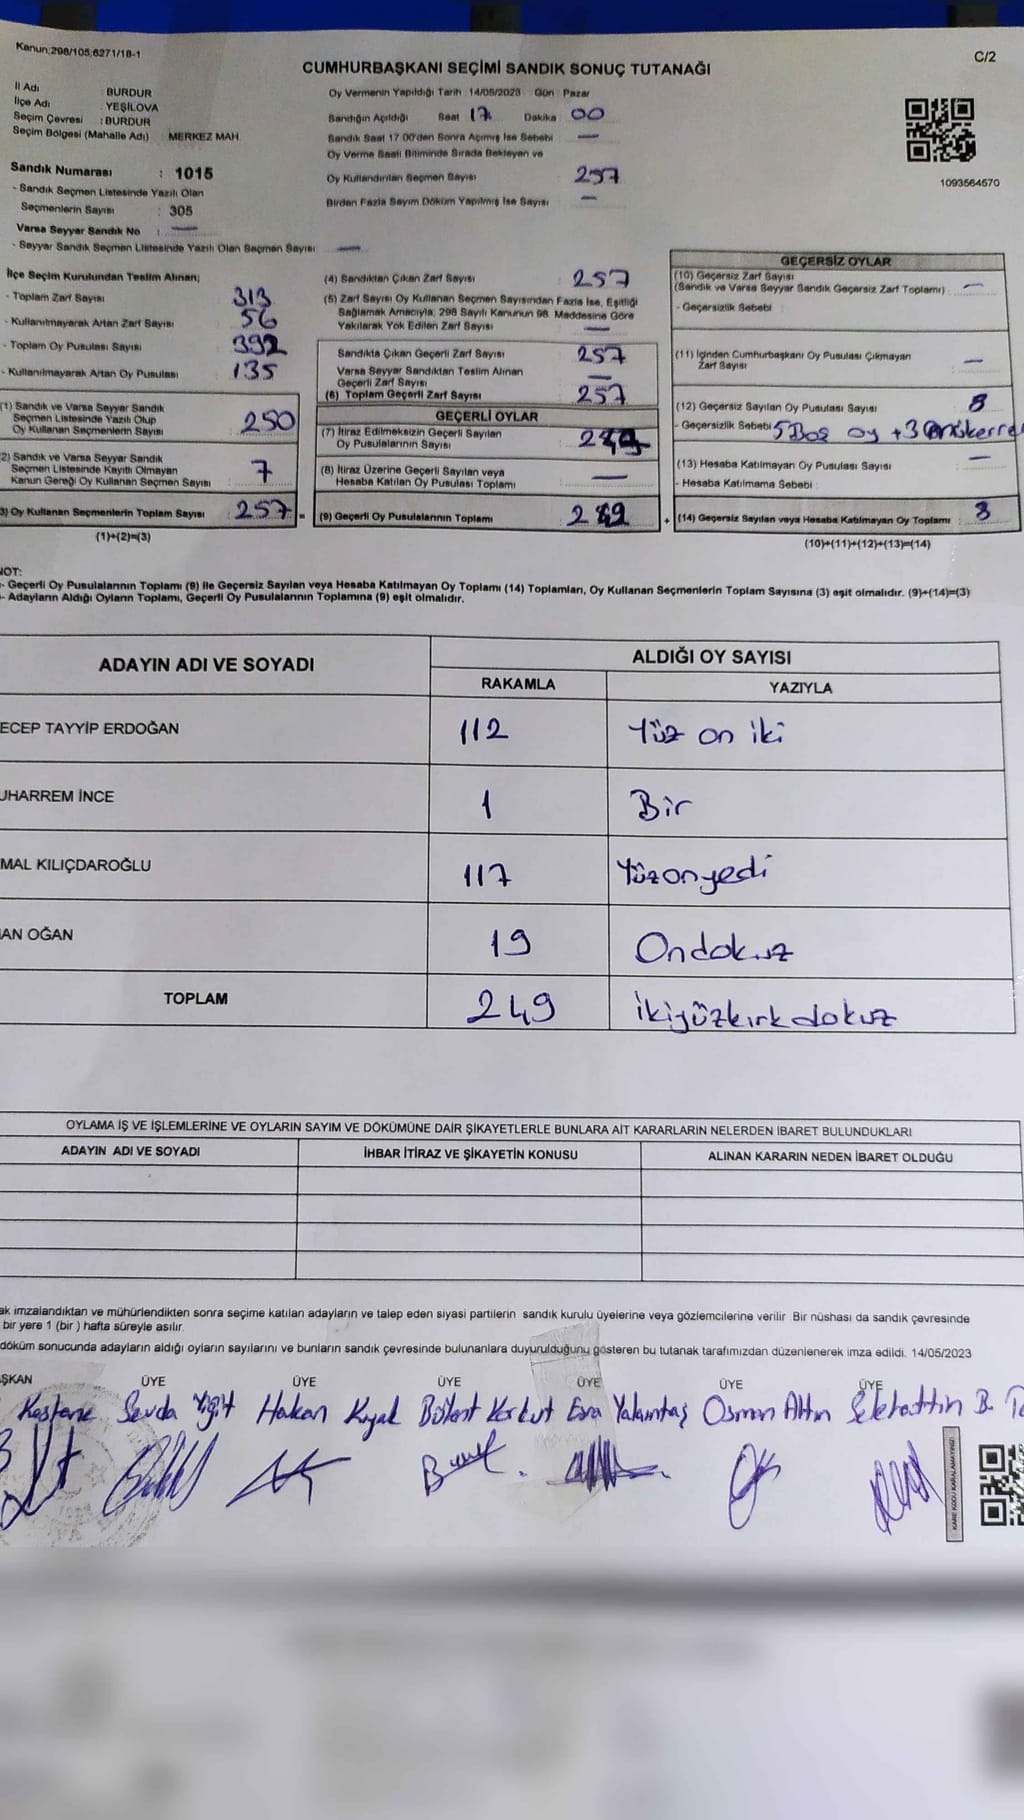 Kanun;298/105;6271/18-1
C/2
CUMHURBAŞKANI SEÇİMİ SANDIK SONUÇ TUTANAĞI
İl Adı : BURDUR
İlçe Adı : YEŞİLOVA
Seçim Çevresi : BURDUR
Seçim Bölgesi (Mahalle Adı) : MERKEZ MAH.
Sandık Numarası : 1015
- Sandık Seçmen Listesinde Yazılı Olan
Seçmenlerin Sayısı : 305
Varsa Seyyar Sandık No : —
- Seyyar Sandık Seçmen Listesinde Yazılı Olan Seçmen Sayısı : —
Oy Vermenin Yapıldığı Tarih : 14/05/2023 Gün : Pazar
Sandığın Açıldığı Saat 17 Dakika : 00
Sandık Saat 17.00'den Sonra Açılmış İse Sebebi : —
Oy Verme Saati Bitiminde Sırada Bekleyen ve
Oy Kullandırılan Seçmen Sayısı 257
Birden Fazla Sayım Döküm Yapılmış İse Sayısı —
1093564570
İlçe Seçim Kurulundan Teslim Alınan;
- Toplam Zarf Sayısı 313
- Kullanılmayarak Artan Zarf Sayısı 56
- Toplam Oy Pusulası Sayısı 392
- Kullanılmayarak Artan Oy Pusulası 135
1) Sandık ve Varsa Seyyar Sandık
Seçmen Listesinde Yazılı Olup
Oy Kullanan Seçmenlerin Sayısı 250
2) Sandık ve Varsa Seyyar Sandık
Seçmen Listesinde Kayıtlı Olmayan
Kanun Gereği Oy Kullanan Seçmen Sayısı : 7
3) Oy Kullanan Seçmenlerin Toplam Sayısı : 257 =
(1)+(2)=(3)
(4) Sandıktan Çıkan Zarf Sayısı 257
(5) Zarf Sayısı Oy Kullanan Seçmen Sayısımdan Fazla İse, Eşitliği
Sağlamak Amacıyla, 298 Sayılı Kanunun 98. Maddesine Göre
Yakılarak Yok Edilen Zarf Sayısı —
Sandıkta Çıkan Geçerli Zarf Sayısı 257
Varsa Seyyar Sandıktan Teslim Alınan
Geçerli Zarf Sayısı —
(6) Toplam Geçerli Zarf Sayısı 257
GEÇERLİ OYLAR
(7) İtiraz Edilmeksizin Geçerli Sayılan
Oy Pusulalarının Sayısı : 249
(8) İtiraz Üzerine Geçerli Sayılan veya
Hesaba Katılan Oy Pusulası Toplamı —
(9) Geçerli Oy Pusulalarının Toplamı : 249 +
GEÇERSİZ OYLAR
(10) Geçersiz Zarf Sayısı
(Sandık ve Varsa Seyyar Sandık Geçersiz Zarf Toplamı) : —
- Geçersizlik Sebebi :
(11) İçinden Cumhurbaşkanı Oy Pusulası Çıkmayan
Zarf Sayısı —
(12) Geçersiz Sayılan Oy Pusulası Sayısı 8
- Geçersizlik Sebebi 5 Boş oy +3
(13) Hesaba Katılmayan Oy Pusulası Sayısı —
- Hesaba Katılmama Sebebi :
(14) Geçersiz Sayılan veya Hesaba Katılmayan Oy Toplamı : 8
(10)+(11)+(12)+(13)=(14)
NOT:
- Geçerli Oy Pusulalarının Toplamı (9) ile Geçersiz Sayılan veya Hesaba Katılmayan Oy Toplamı (14) Toplamları, Oy Kullanan Seçmenlerin Toplam Sayısına (3) eşit olmalıdır. (9)+(14)=(3)
- Adayların Aldığı Oyların Toplamı, Geçerli Oy Pusulalarının Toplamına (9) eşit olmalıdır.
ADAYIN ADI VE SOYADI
ALDIĞI OY SAYISI
RAKAMLA YAZIYLA
ECEP TAYYİP ERDOĞAN 112 Yüz on iki
UHARREM İNCE 1 Bir
MAL KILIÇDAROĞLU 117 Yüzonyedi
AN OĞAN 19 Ondokuz
TOPLAM 249 ikiyüzkırkdokuz
OYLAMA İŞ VE İŞLEMLERİNE VE OYLARIN SAYIM VE DÖKÜMÜNE DAİR ŞİKAYETLERLE BUNLARA AİT KARARLARIN NELERDEN İBARET BULUNDUKLARI
ADAYIN ADI VE SOYADI İHBAR İTİRAZ VE ŞİKAYETİN KONUSU ALINAN KARARIN NEDEN İBARET OLDUĞU
ak imzalandıktan ve mühürlendikten sonra seçime katılan adayların ve talep eden siyasi partilerin sandık kurulu üyelerine veya gözlemcilerine verilir. Bir nüshası da sandık çevresinde
bir yere 1 (bir ) hafta süreyle asılır.
döküm sonucunda adayların aldığı oyların sayılarını ve bunların sandık çevresinde bulunanlara duyurulduğunu gösteren bu tutanak tarafımızdan düzenlenerek imza edildi. 14/05/2023
ŞKAN ÜYE ÜYE ÜYE ÜYE ÜYE ÜYE
Kestane Sevda Yiğit Hakan Kıyak Bülent Korkut Esra Yalamtaş Osman Altın Selehattin B.
KARE KODU KARALAMAYINIZ!